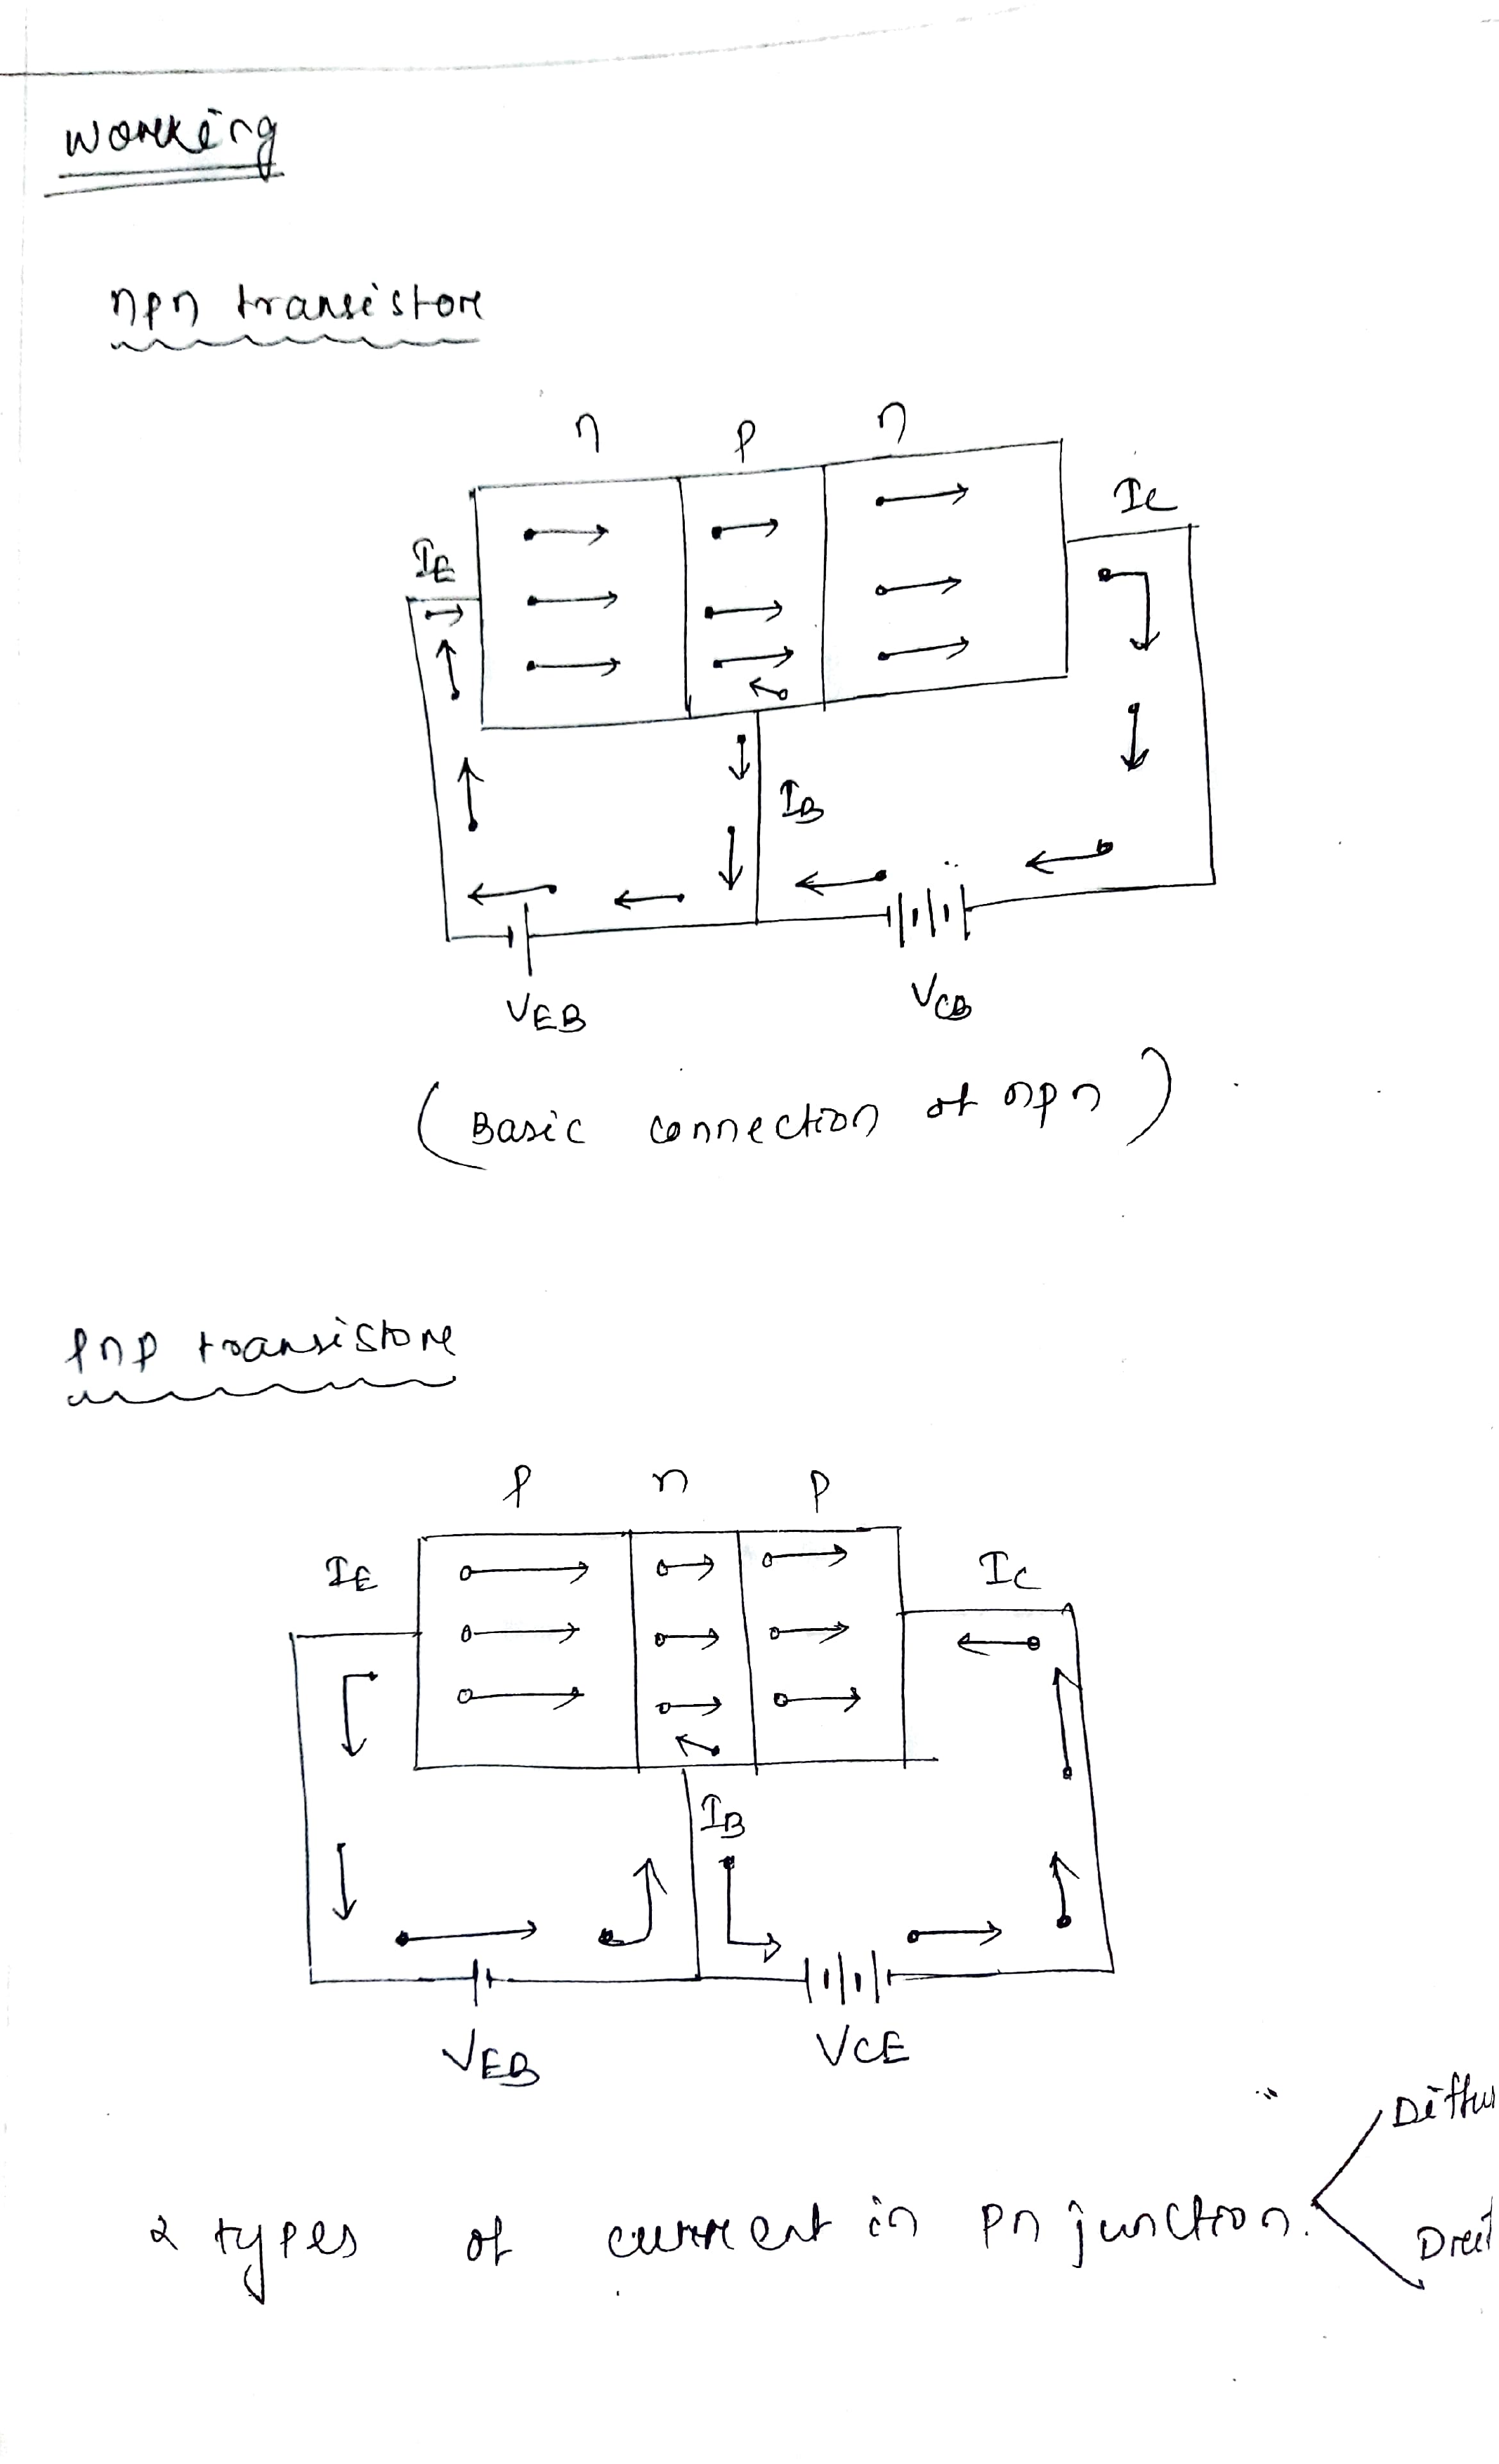 working
npn transistore
n p n
IE
IC
IB
VEB
VCB
(Basic connection of npn)
pnp transistore
p n p
IE
IC
IB
VEB
VCE
2 types of current in pn junction.